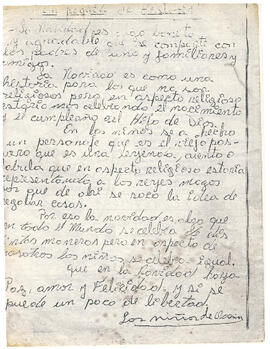 un poquito de historia
La Navidad es algo bonito
y agradable que se comparte con
los padres de uno y familiares y
amigos.
La Navidad es como una
historia para los que no son
religiosos pero en aspecto religioso
estaríamos celebrando el nacimiento
y el cumpleaño del Hijo de Dios.
En los niños se a hecho
un personaje que es el viejo pas-
cuero que es una leyenda, cuento o
fabula que en aspecto religioso estaria
representando a los reyes magos
por que de ahi se sacó la idea de
regalar cosas.
Por eso la navidad es algo que
en todo el Mundo se celebra de dis-
tintas maneras pero en aspecto de
nosotros los niños se celebra igual.
que en la Navidad haya
Paz, amor y Felicidad, y si se
puede un poco de libertad.
Los niños de